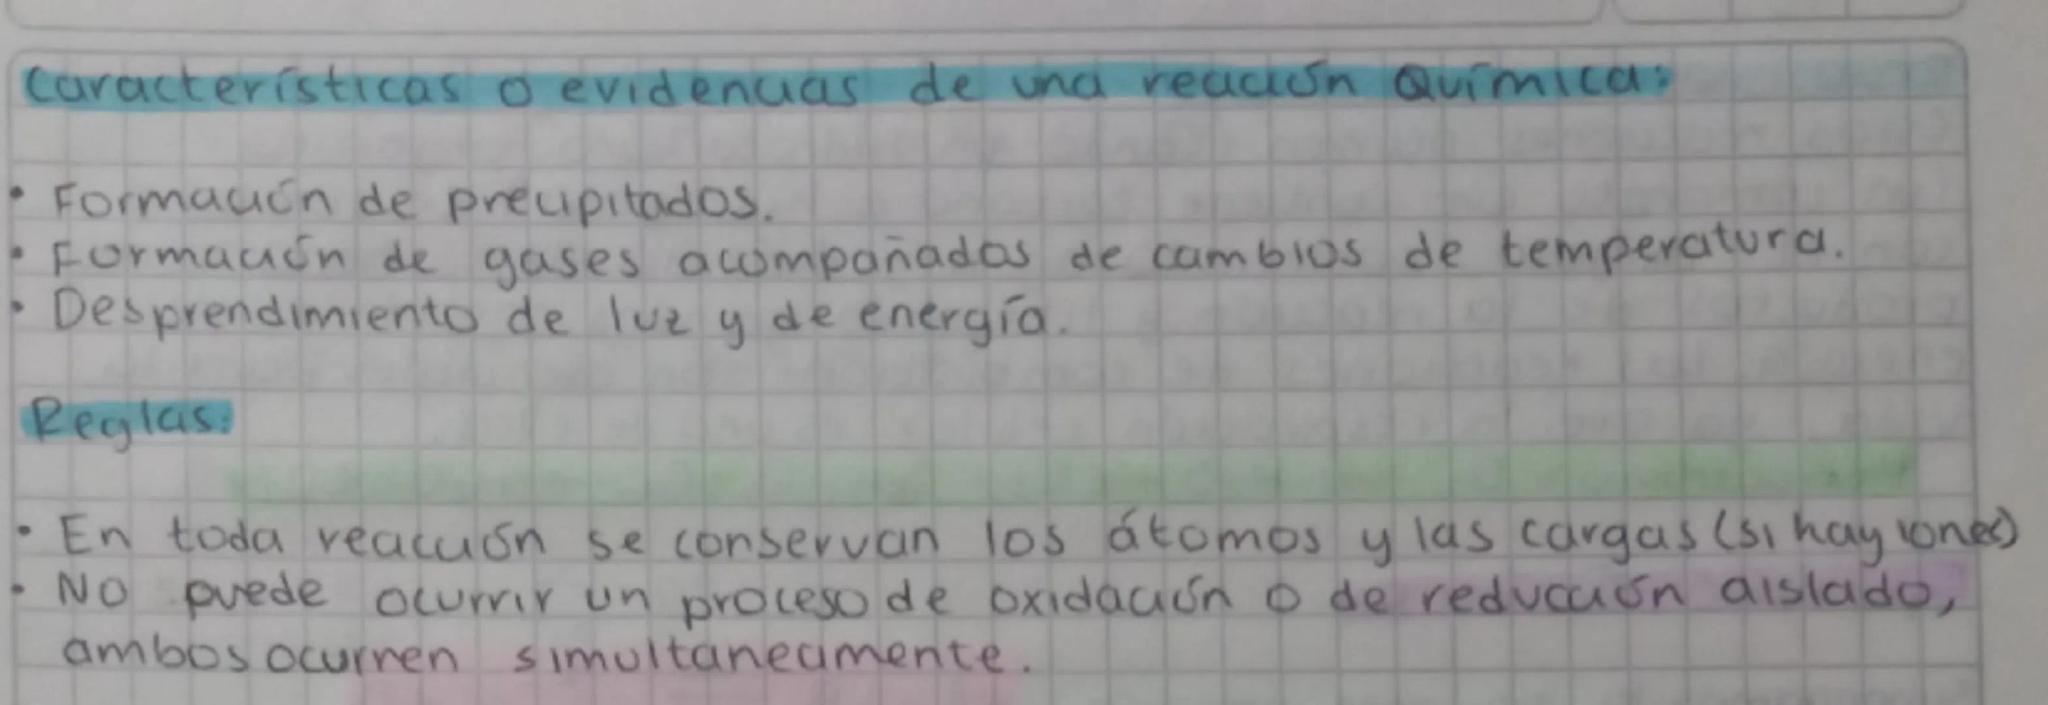 Características o evidencias de una reacción Química:
• Formación de precipitados.
• Formación de gases acompañados de cambios de temperatura.
• Desprendimiento de luz y de energía.
Reglas:
• En toda reacción se conservan los átomos y las cargas (si hay iones)
• No puede ocurrir un proceso de oxidación o de reducción aislado,
ambos ocurren simultaneamente.